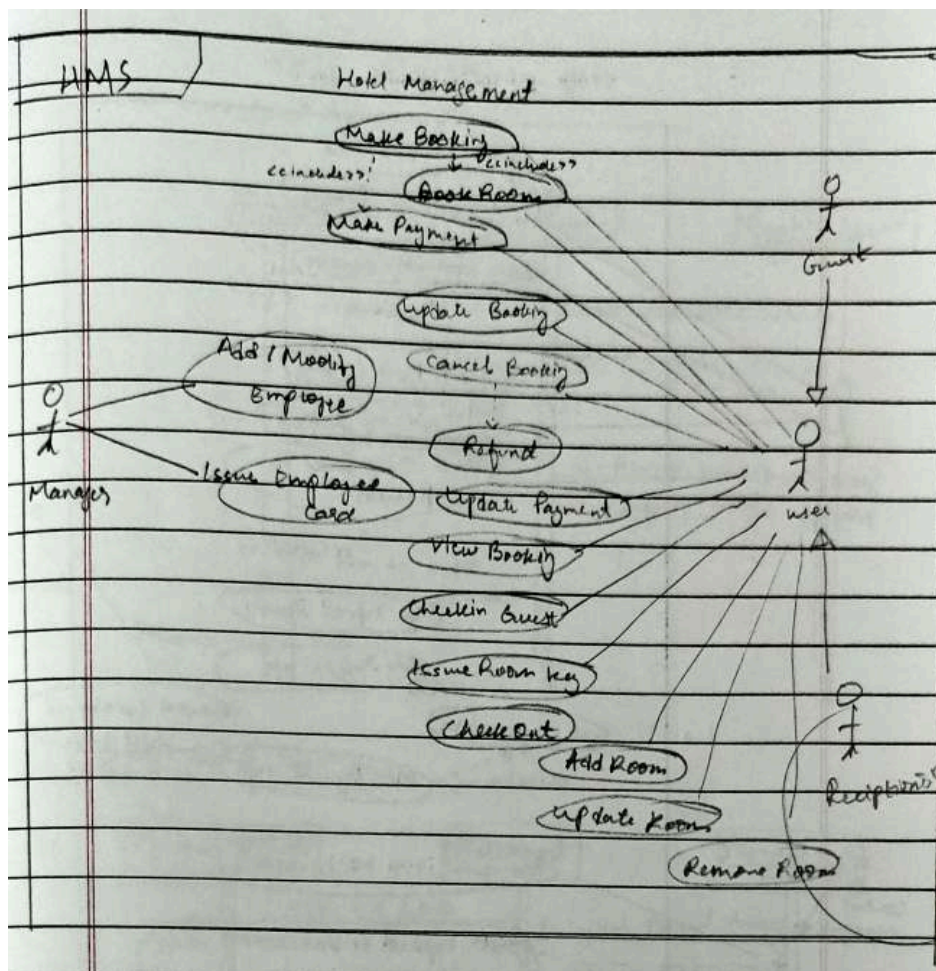 HMS
Hotel Management
Make Booking
<<include>>
<<include>>
Book Room
Make Payment
Guest
Update Booking
Add / Modify
Employee
Cancel Booking
Refund
Manager
Issue Employee
Card
Update Payment
user
View Booking
Checkin Guest
Issue Room key
Check Out
Add Room
Update Room
Remove Room